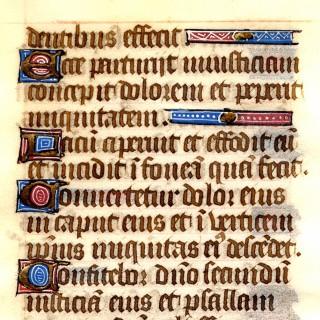 dentibus effecit
Ecce parturiit iniusticiam
concepit dolorem et peperit
iniquitatem.
Lacū aperuit et effodit eū
et incidit ī foueā quā fecit.
Conuertetur dolor eius
in caput eius et ī verticem
ipsius iniquitas eiꝰ descēdet.
Confitebor dño secundū
iusticiā eius et psallam